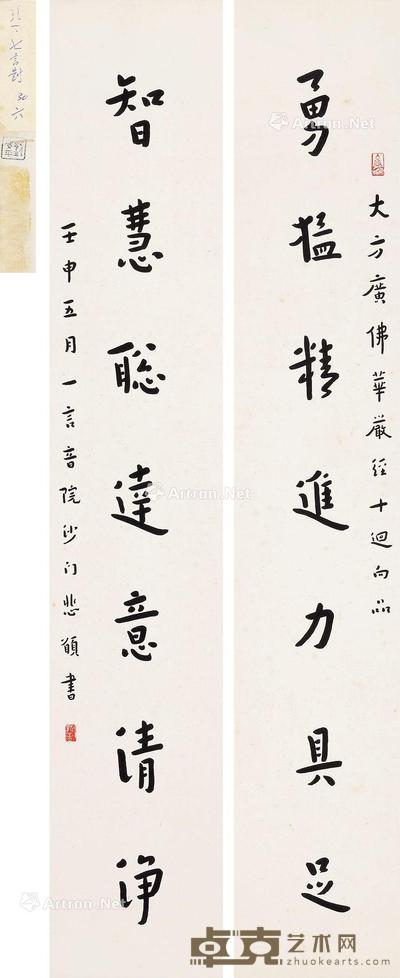 大方廣佛華嚴經十迴向品
勇猛精進力具足
智慧聰達意清淨
壬申五月一言音院沙门悲願書
Artron.Net
卓克艺术网
zhuokearts.com